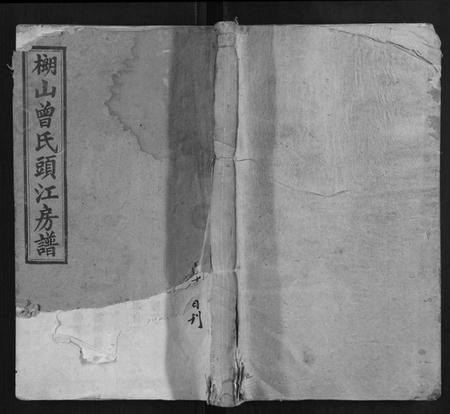 棚山曾氏頭江房譜
日刊